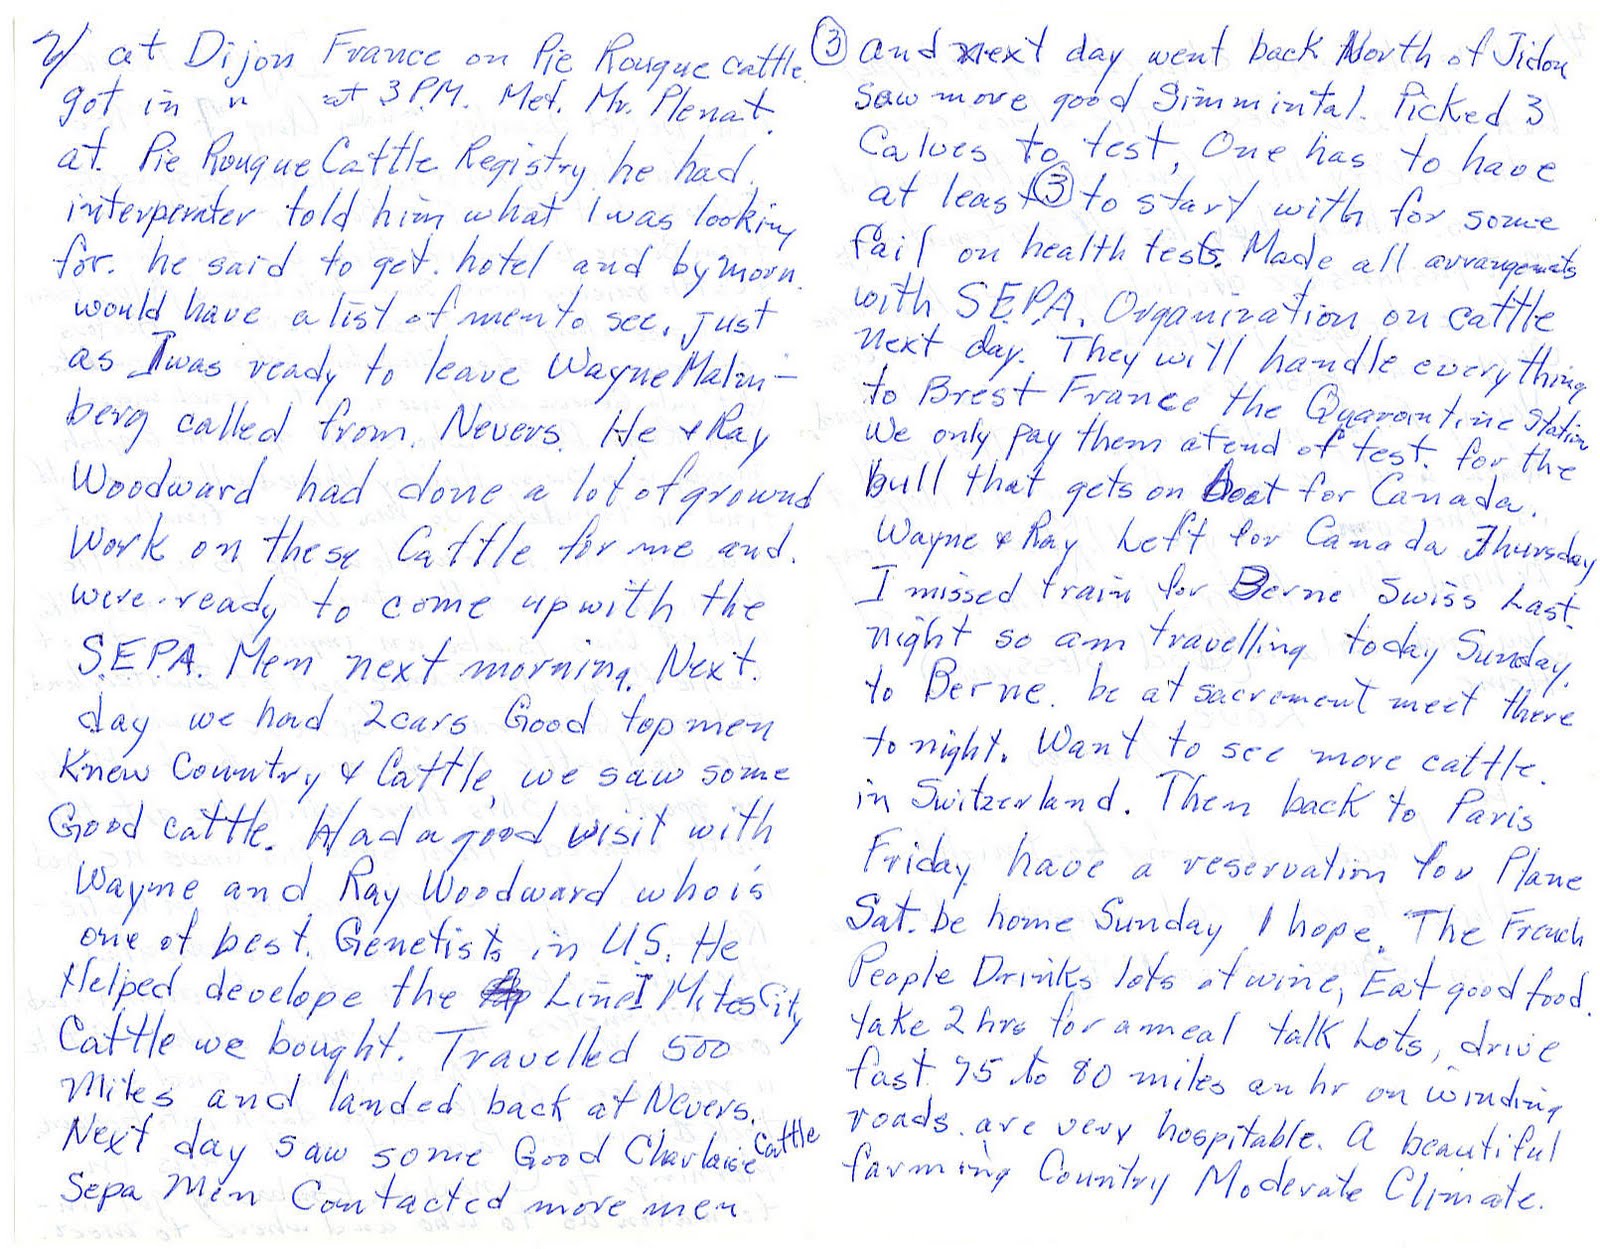 2/ at Dijon France on Pie Rouque cattle.
got in " at 3 P.M. Met. Mr. Plenat.
at. Pie Rouque Cattle Registry he had.
interperater told him what I was looking
for. he said to get. hotel and by morn.
would have a list of men to see, just
as I was ready to leave Wayne Malm-
berg called from. Nevers. He & Ray
Woodward had done a lot of ground
Work on these Cattle for me and.
were ready to come up with the
S.E.P.A. Men next morning. Next.
day we had 2 cars Good top men
Knew Country & Cattle, we saw some
Good cattle. Had a good visit with
Wayne and Ray Woodward who is
one of best. Genetists in U.S. He
Helped develope the Line I Miles City
Cattle we bought. Travelled 500
Miles and landed back at Nevers.
Next day saw some Good Charlaise Cattle
Sepa Men Contacted more men
③ and next day went back North of Jidon
saw more good Simmintal. Picked 3
Calves to test, One has to have
at least ③ to start with for some
fail on health tests. Made all arrangemts
with S.E.P.A. Organization on cattle
next day. They will handle everything
to Brest France the Quarantine Station
We only pay them at end of test. for the
bull that gets on boat for Canada.
Wayne & Ray Left for Canada Thursday
I missed train for Berne Swiss Last.
night so am travelling today Sunday.
to Berne. be at sacrement meet there
to night. Want to see more cattle.
in Switzerland. Then back to Paris
Friday have a reservation for Plane
Sat. be home Sunday I hope. The French
People Drinks lots of wine, Eat good food.
take 2 hrs for a meal talk Lots, drive
fast 75 to 80 miles an hr on winding
roads. are very hospitable. A beautiful
farming Country Moderate Climate.